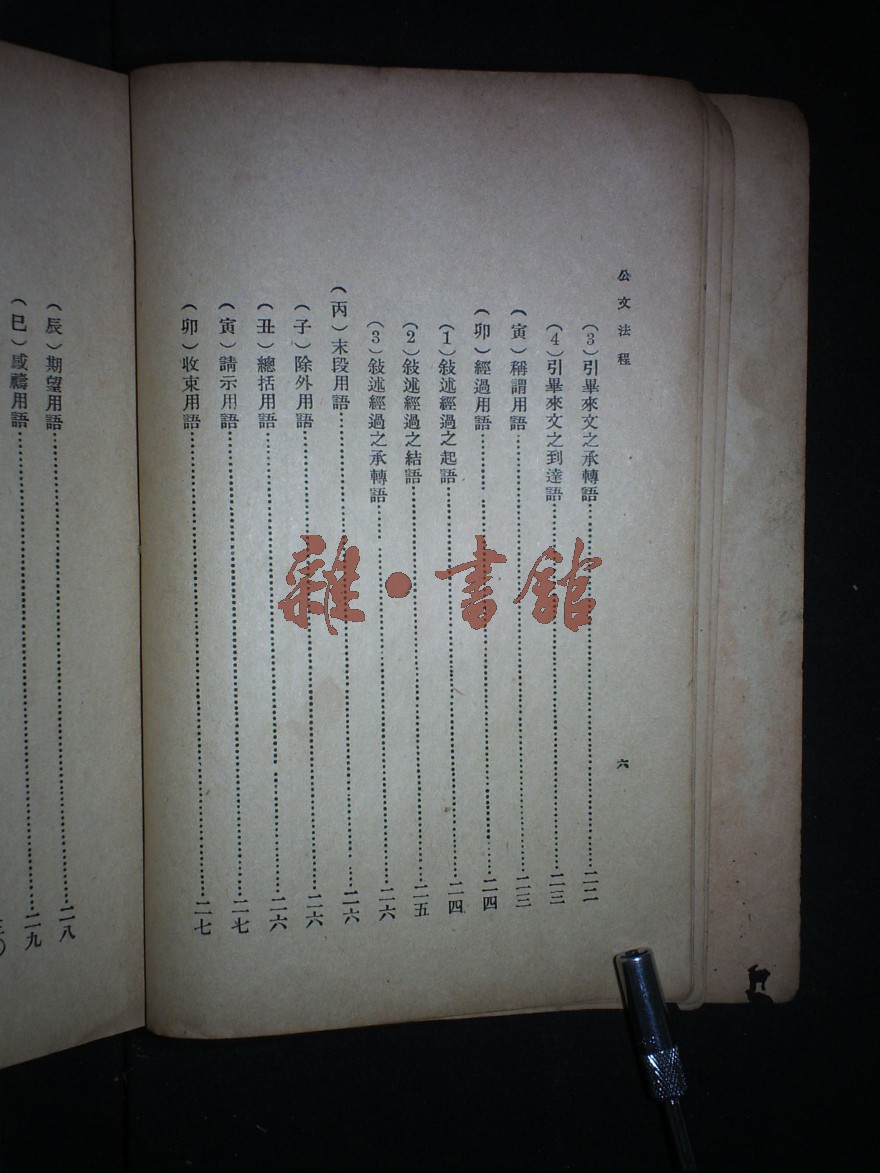 公文法程
六
(3)引畢來文之承轉語……二二
(4)引畢來文之到達語……二三
(寅)稱謂用語……二三
(卯)經過用語……二四
(1)敍述經過之起語……二四
(2)敍述經過之結語……二五
(3)敍述經過之承轉語……二六
(丙)末段用語……二六
(子)除外用語……二六
(丑)總括用語……二六
(寅)請示用語……二七
(卯)收束用語……二七
(辰)期望用語……二八
(巳)感禱用語……二九
三〇
雜·書館